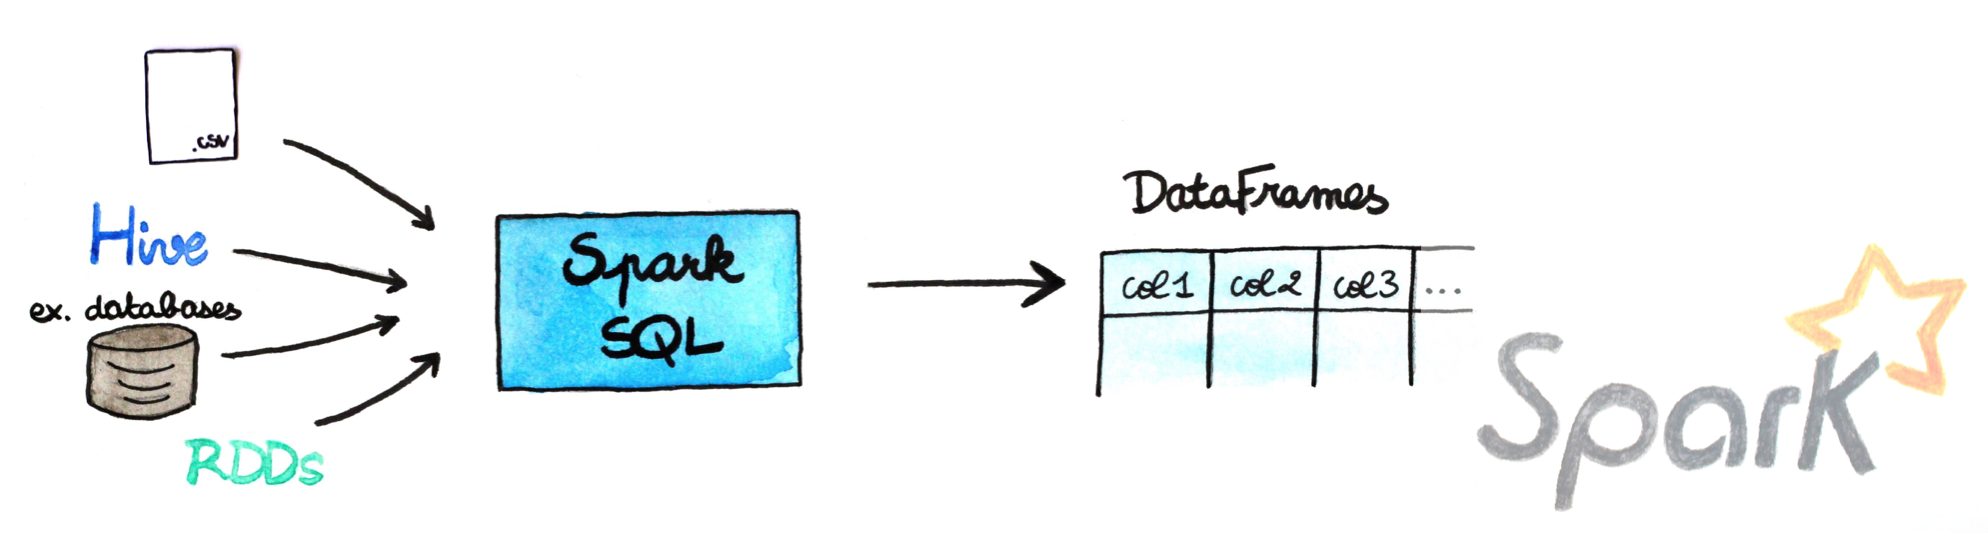 .csv
Hive
ex. databases
RDDs
Spark
SQL
DataFrames
col1 col2 col3 ...
Spark